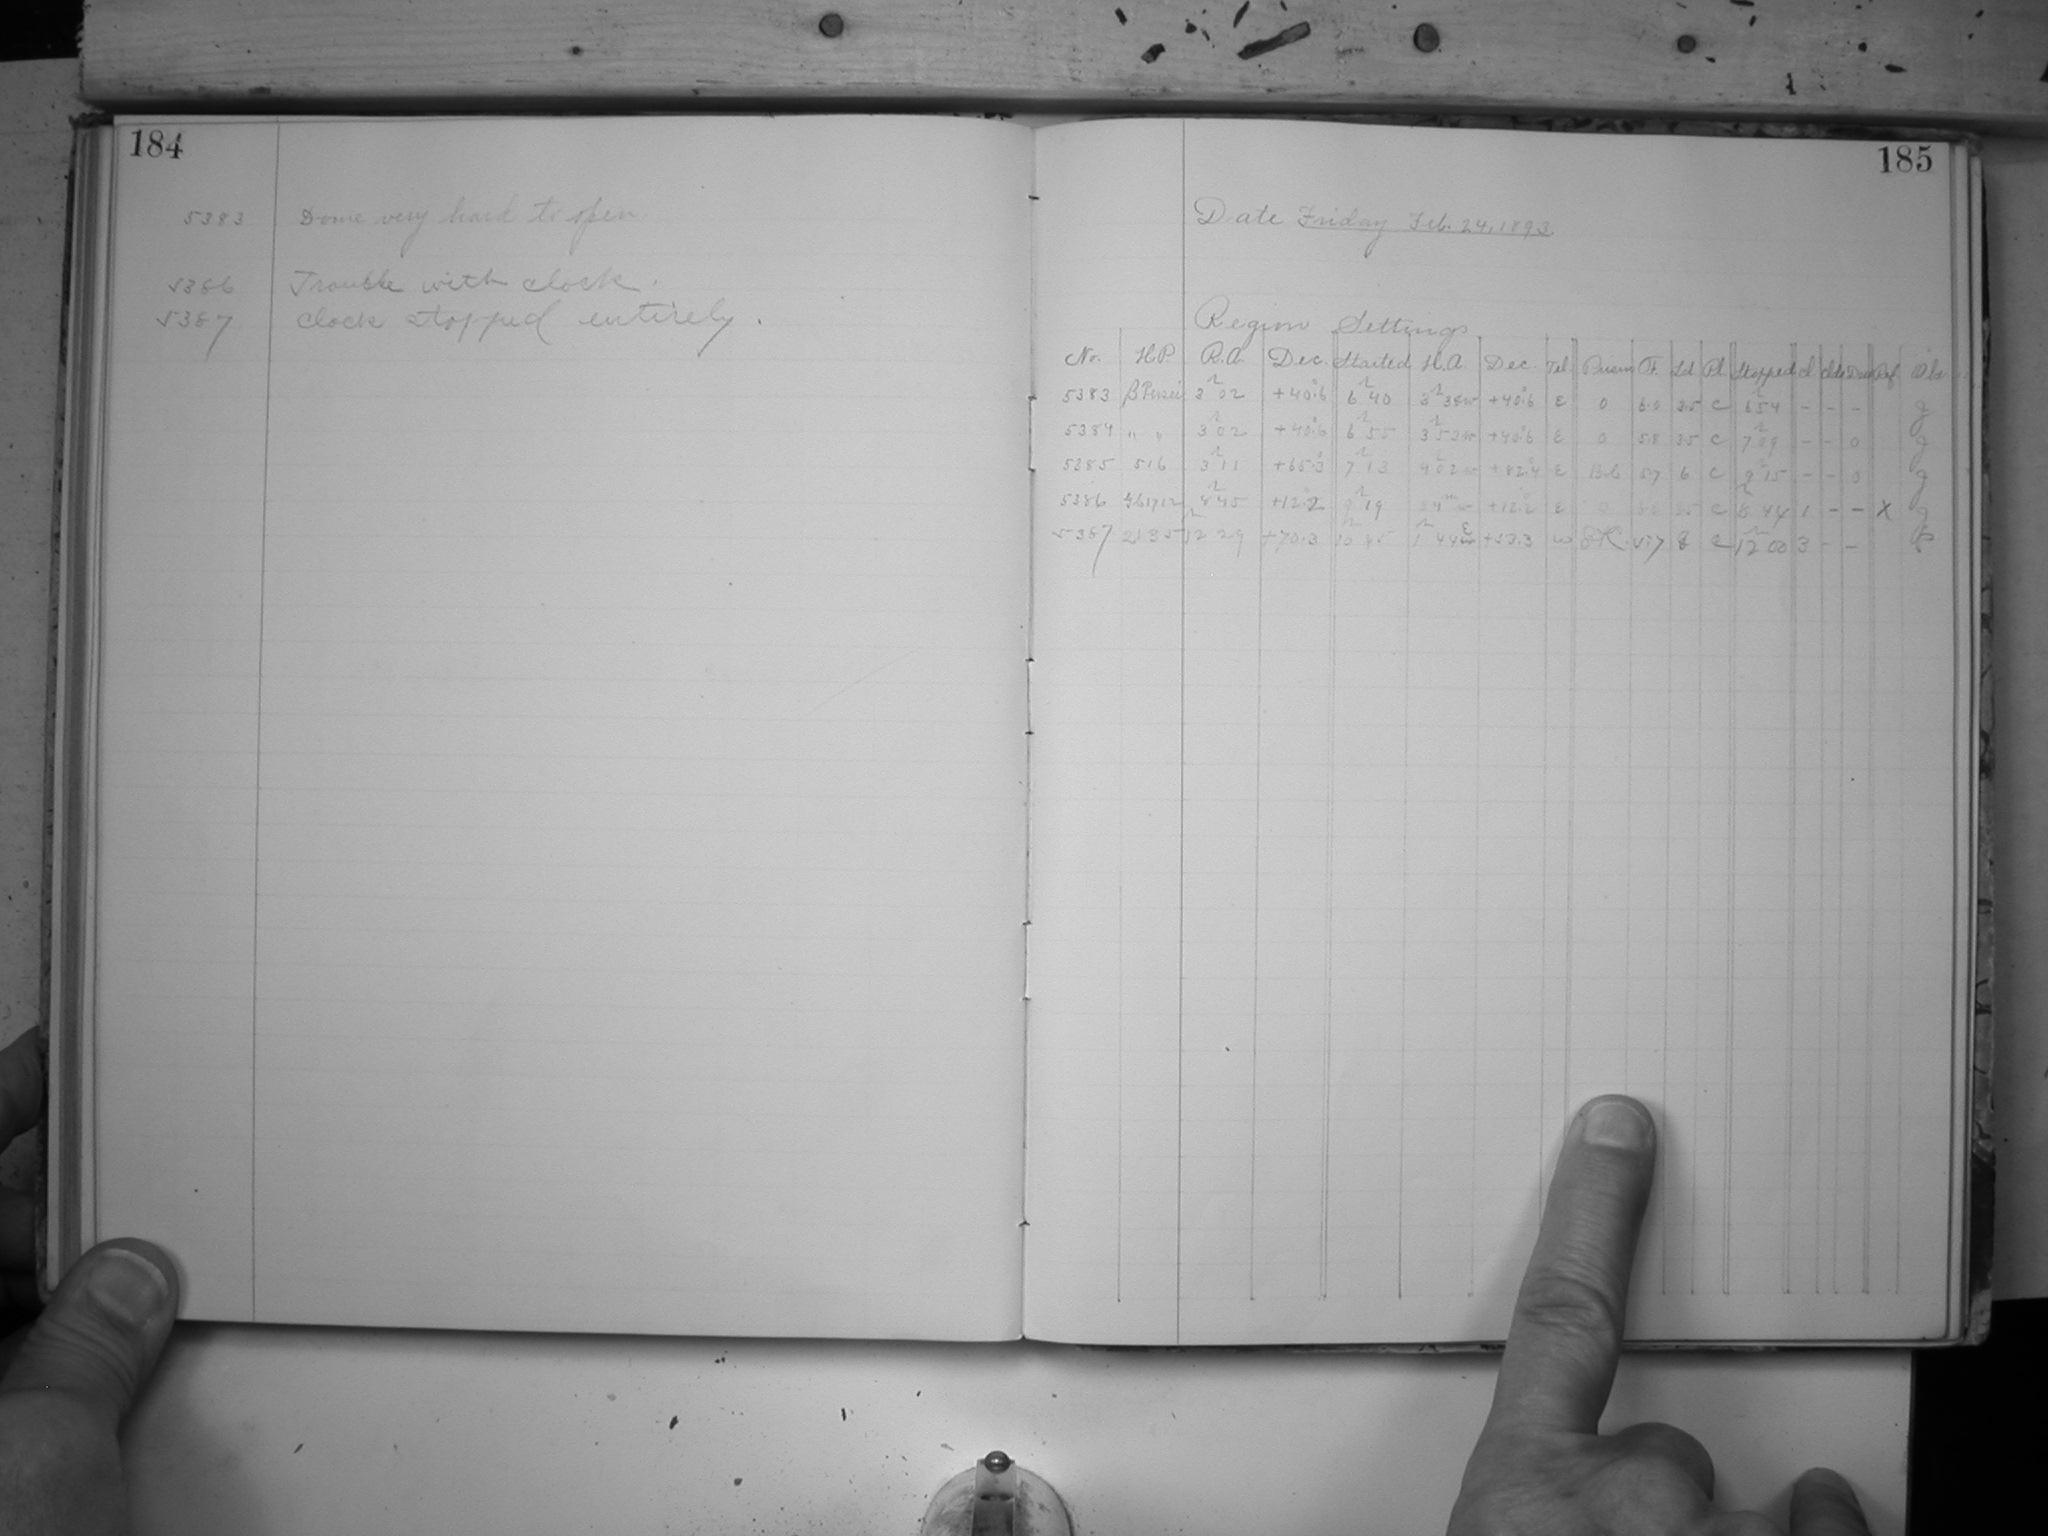 184
5383 Dome very hard to open
5386 Trouble with clock.
5387 clock stopped entirely.
185
Date Friday Feb. 24, 1893.
Region Settings
No. H.P. R.A. Dec. Started H.A. Dec. Tel. Prism Ct. Ld Pl. Stopped cl clds Dew Ref. Obs
5383 β Persei 3h 02 +40.°6 6h 40 3h 38w +40.°6 E 0 6.0 3.5 C 6h 54 - - - g
5384 " " 3h 02 +40.°6 6h 55 3h 53w +40.°6 E 0 5.8 3.5 C 7h 09 - - 0 g
5385 516 3h 11 +65.°3 7h 13 4h 02w +82.°4 E 5.7 6 C 9h 15 - - 0 g
5386 8h 45 +12.°2 9h 19 34m w +12.°2 E 3.5 C 1 - - X g
5387 2135 12h 29 +70.3 10h 45 1h 44E +53.3 w 5.7 8 C 12h 00 3 - -